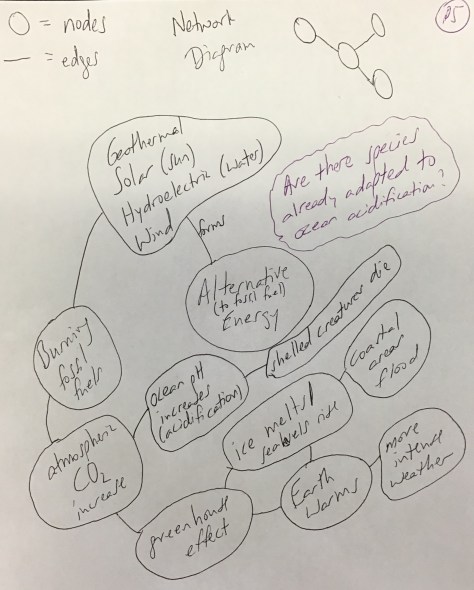 = nodes
= edges
Network
Diagram
P5
Geothermal
Solar (sun)
Hydroelectric (water)
Wind
forms
Are there species
already adapted to
ocean acidification?
Alternative
(to fossil fuel)
Energy
Burning
fossil
fuels
ocean pH
increases
(acidification)
shelled creatures die
coastal
areas
flood
ice melts/
sea levels rise
atmospheric
CO2
increase
greenhouse
effect
Earth
Warms
more
intense
weather